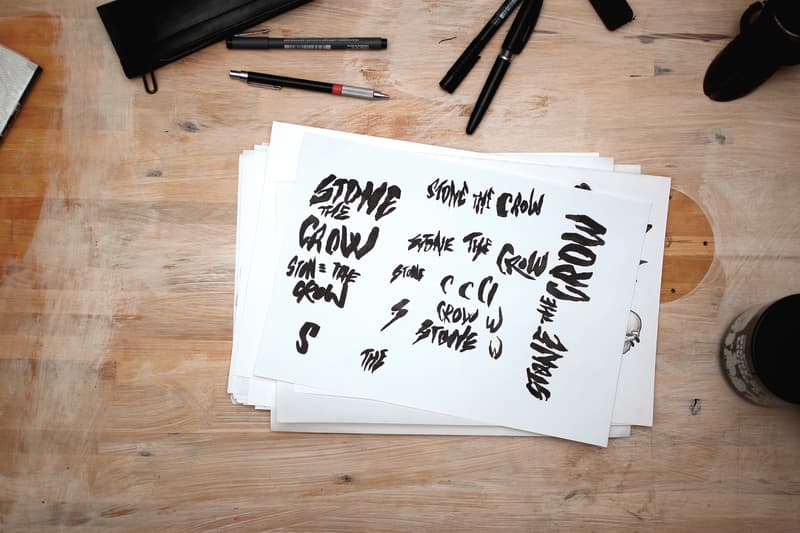 STONE
THE
CROW
STONE THE
CROW
S
THE
STONE THE CROW
STONE THE CROW
STONE
C C C
CROW W
S STONE W
STONE THE CROW